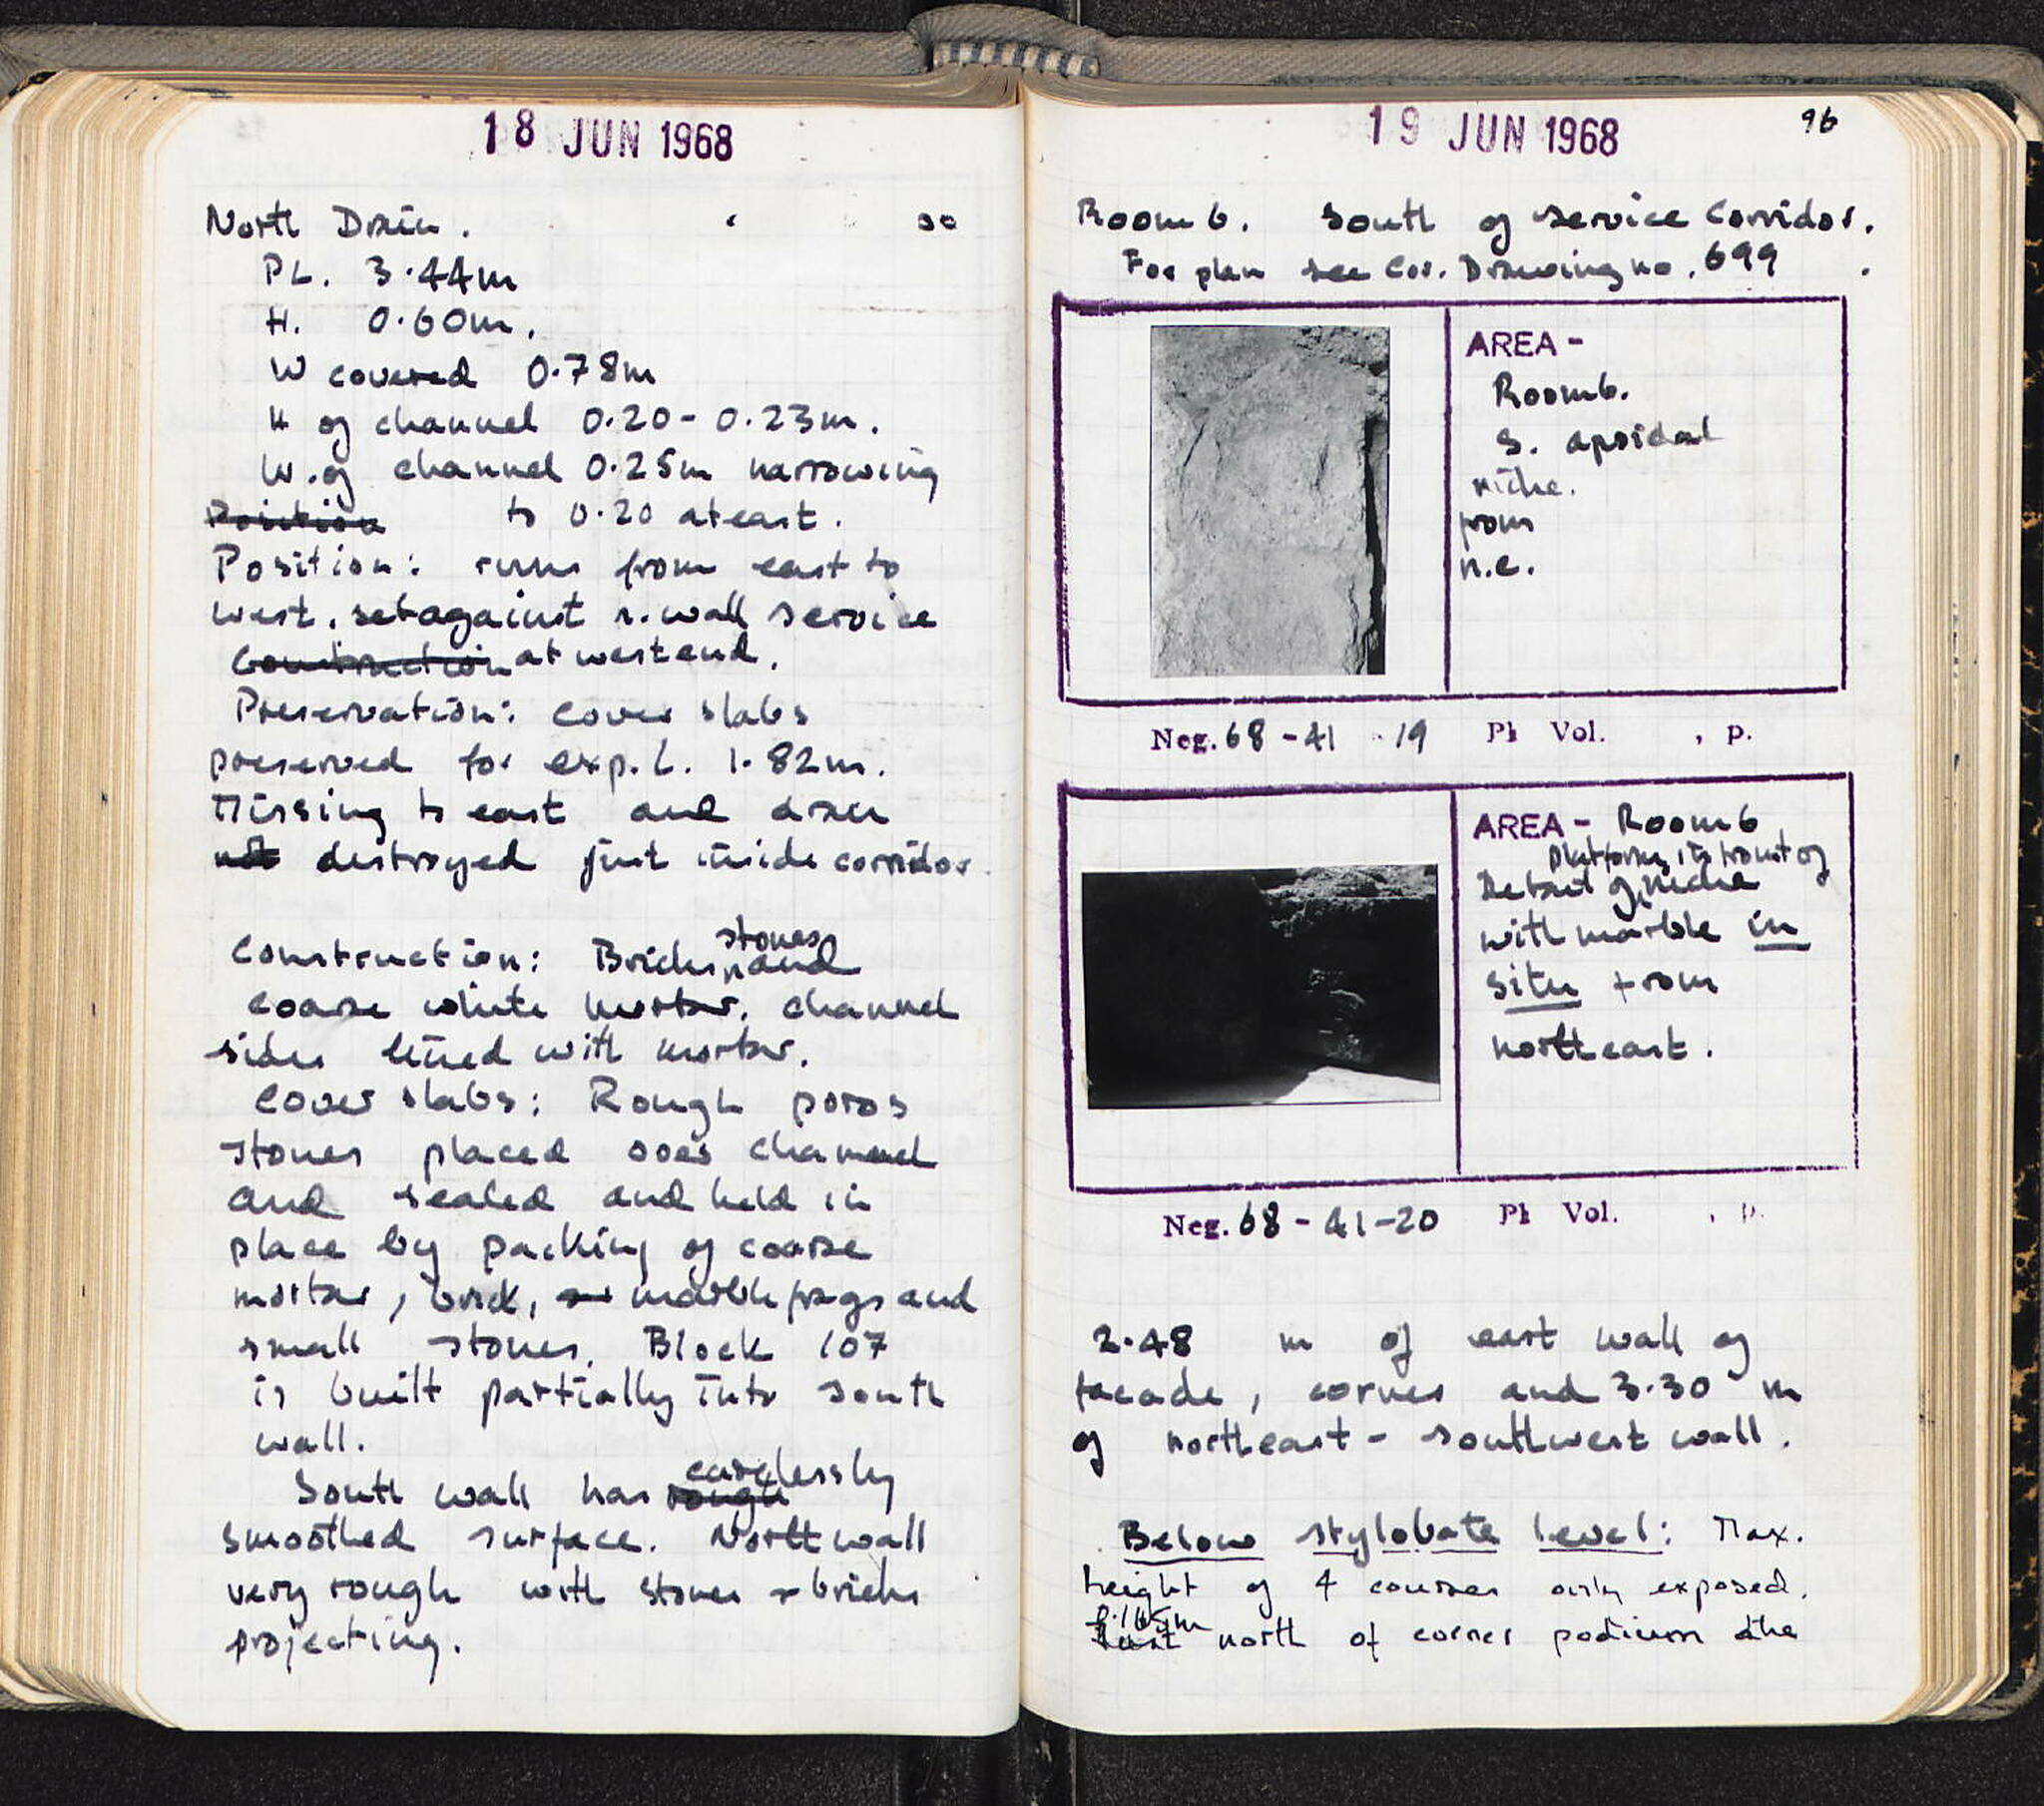 18 JUN 1968
North Drain.
PL. 3.44m
H. 0.60m.
W covered 0.78m
H of channel 0.20 - 0.23m.
W. of channel 0.25m narrowing
Position to 0.20 at east.
Position: runs from east to
west, set against n. wall service
Construction at west end.
Preservation: cover slabs
preserved for exp. L. 1.82m.
Missing to east and drain
not destroyed just inside corridor.
Construction: Bricks, stones and
coarse white mortar. Channel
sides lined with mortar.
Cover slabs: Rough poros
stones placed over channel
and sealed and held in
place by packing of coarse
mortar, brick, or marble frags and
small stones. Block 107
is built partially into south
wall.
South wall has rough carelessly
smoothed surface. North wall
very rough with stones + bricks
projecting.
19 JUN 1968
96
Room 6. South of service Corridor.
For plan see Cor. Drawing no. 699
AREA -
Room 6.
S. apsidal
niche.
from
n.e.
Neg. 68 - 41 - 19 Ph Vol. , p.
AREA - Room 6
platform in front of
Detail of niche
with marble in
situ from
northeast.
Neg. 68 - 41 - 20 Ph Vol. , p.
2.48 m of east wall of
facade, corner and 3.30 m
of northeast - southwest wall.
Below stylobate level: Max.
height of 4 courses only exposed.
0.165m
Just north of corner podium the